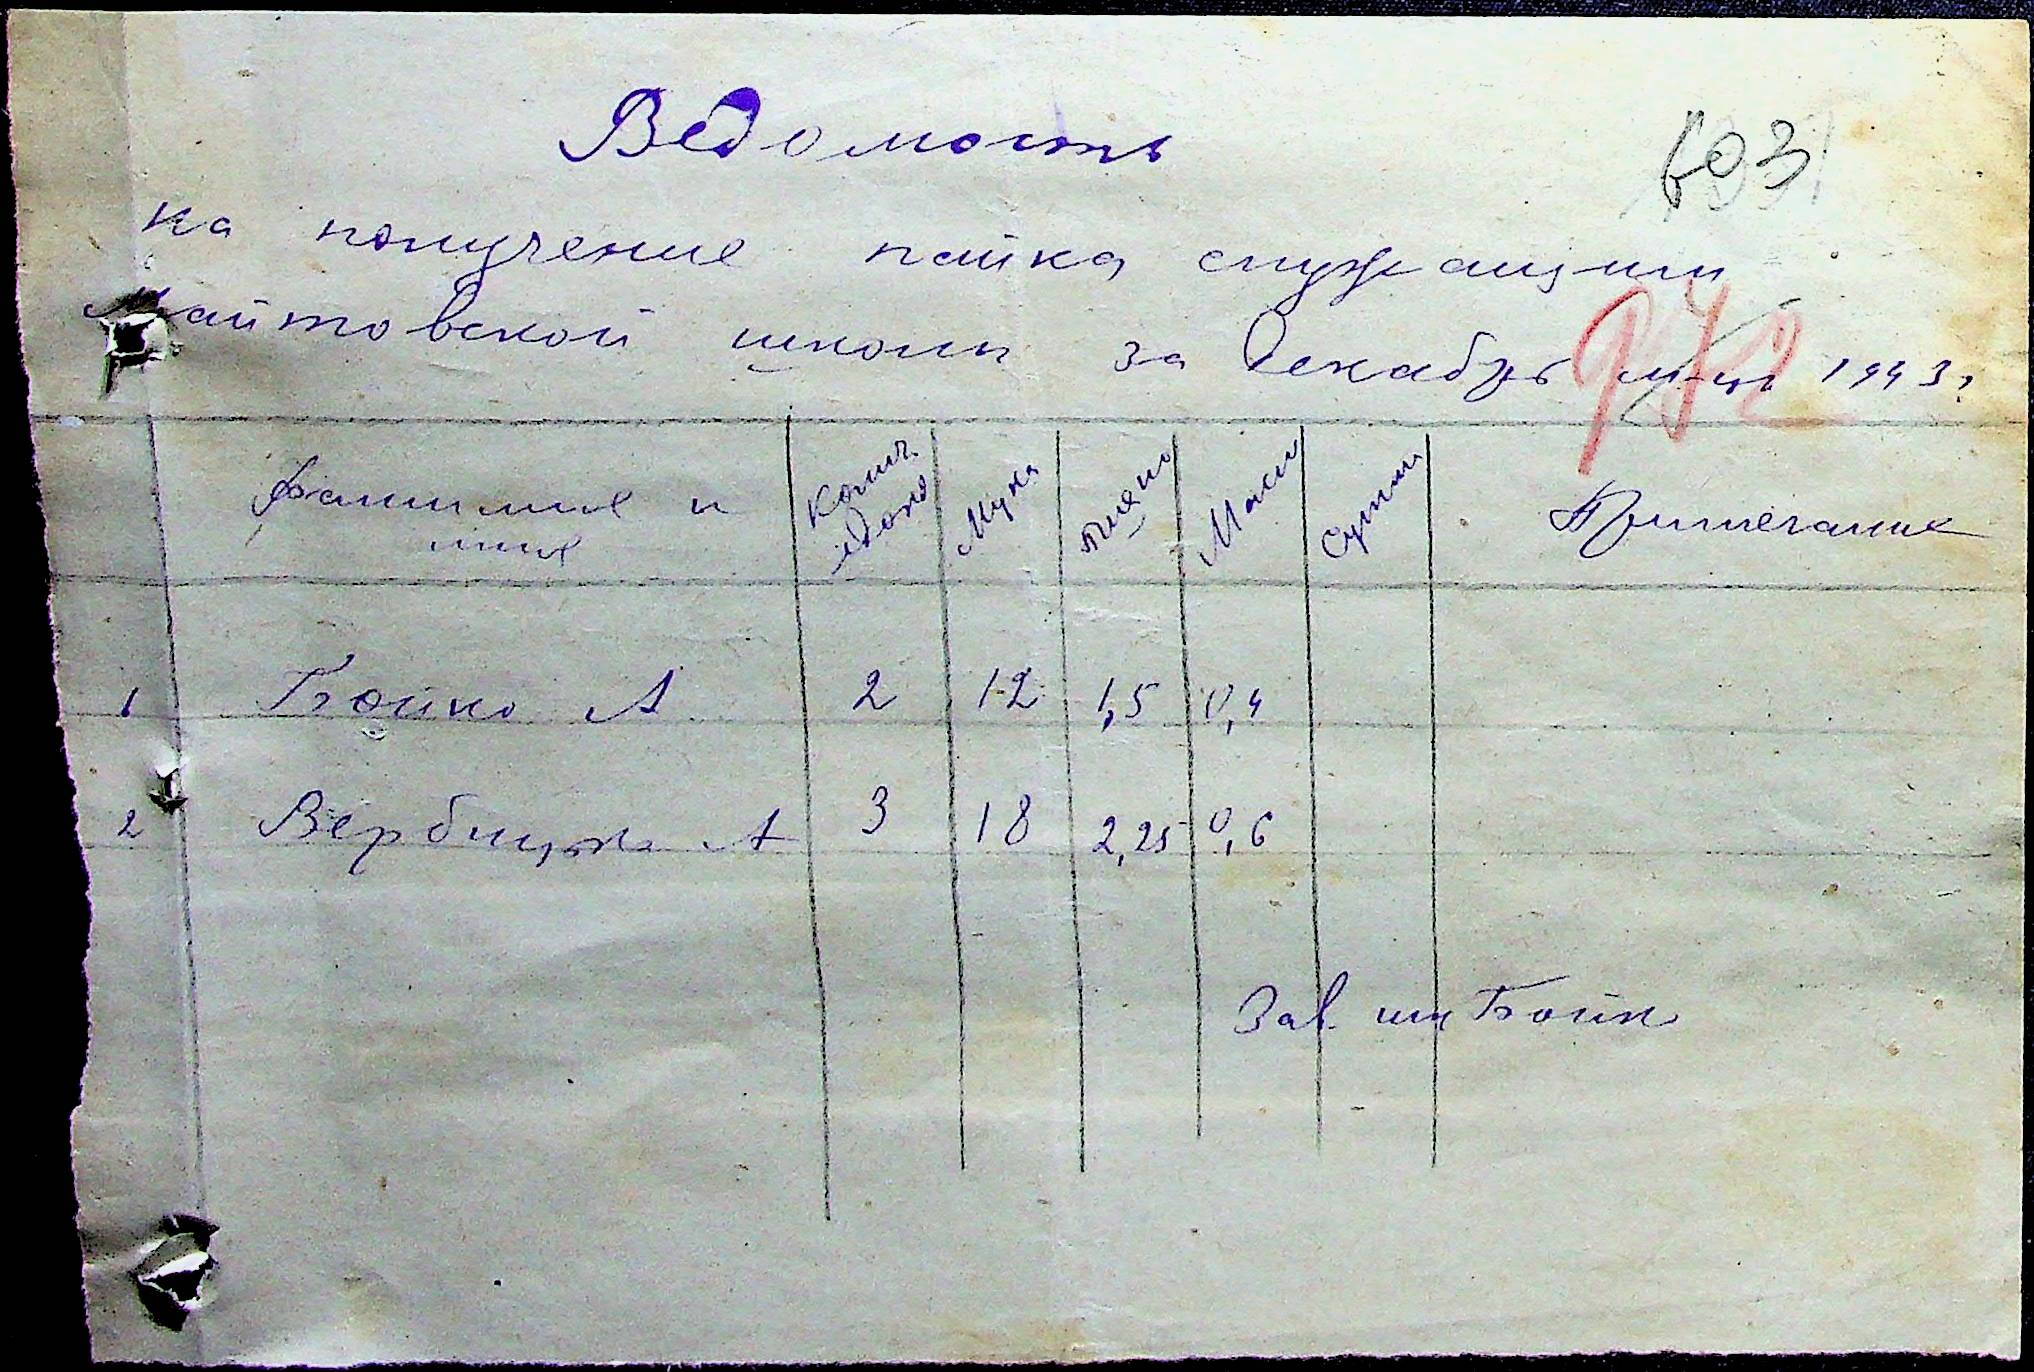 Ведомость
103
на получение пайка служащим
Майтовской школы за Декабрь м-ц 1943 г
972
Фамилия и имя
Колич. едоков
Мука
Пшено
Масл
Сумм
Примечание
1 Бойко А 2 12 1,5 0,4
2 Вербицк А 3 18 2,25 0,6
Зав. шк Бойк